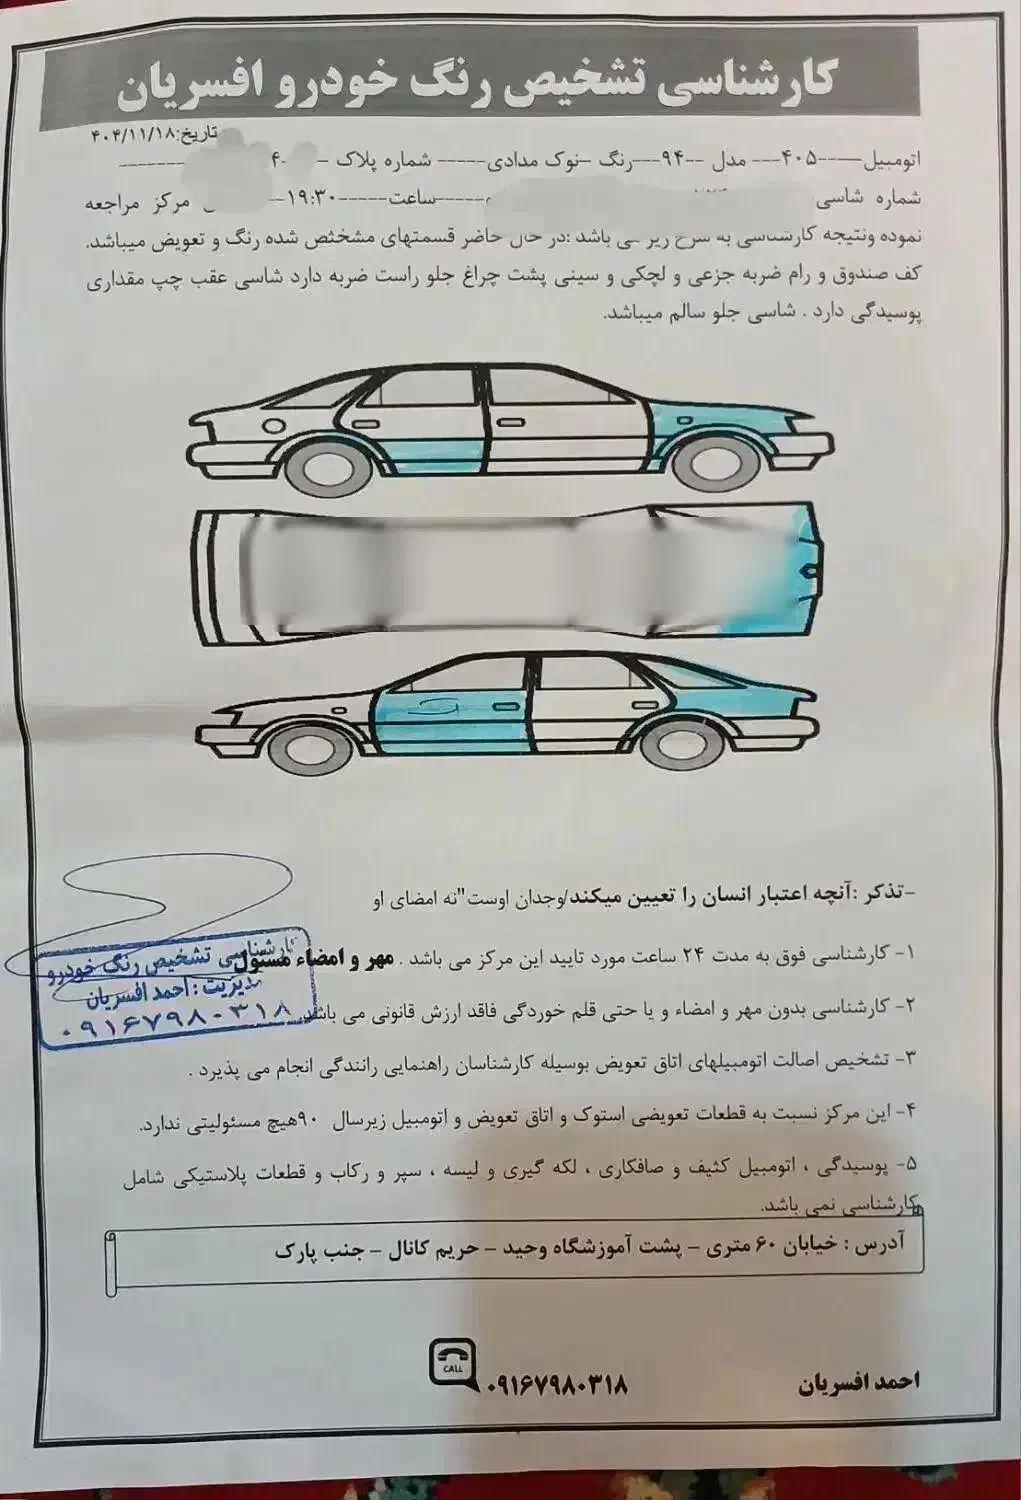 کارشناسی تشخیص رنگ خودرو افسریان
تاریخ:۴۰۴/۱۱/۱۸
اتومبیل-----۴۰۵--- مدل --۹۴---رنگ -نوک مدادی----- شماره پلاک -
شماره شاسی -----ساعت-----۱۹:۳۰-- مرکز مراجعه
نموده ونتیجه کارشناسی به شرح زیر می باشد :در حال حاضر قسمتهای مشخثص شده رنگ و تعویض میباشد.
کف صندوق و رام ضربه جزعی و لچکی و سینی پشت چراغ جلو راست ضربه دارد شاسی عقب چپ مقداری
پوسیدگی دارد . شاسی جلو سالم میباشد.
-تذکر :آنچه اعتبار انسان را تعیین میکند/وجدان اوست"نه امضای او
۱- کارشناسی فوق به مدت ۲۴ ساعت مورد تایید این مرکز می باشد . مهر و امضاء مسئول
۲- کارشناسی بدون مهر و امضاء و یا حتی قلم خوردگی فاقد ارزش قانونی می باشد.
۳- تشخیص اصالت اتومبیلهای اتاق تعویض بوسیله کارشناسان راهنمایی رانندگی انجام می پذیرد .
۴- این مرکز نسبت به قطعات تعویضی استوک و اتاق تعویض و اتومبیل زیرسال ۹۰هیچ مسئولیتی ندارد.
۵- پوسیدگی ، اتومبیل کثیف و صافکاری ، لکه گیری و لیسه ، سپر و رکاب و قطعات پلاستیکی شامل
کارشناسی نمی باشد.
کارشناسی تشخیص رنگ خودرو
مدیریت : احمد افسریان
۰۹۱۶۷۹۸۰۳۱۸
آدرس : خیابان ۶۰ متری - پشت آموزشگاه وحید - حریم کانال - جنب پارک
احمد افسریان
۰۹۱۶۷۹۸۰۳۱۸
CALL